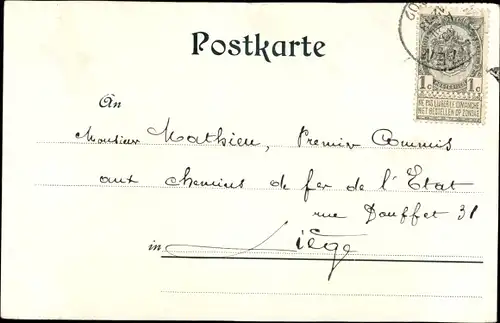 Postkarte
1c 1c
NE PAS LIVRER LE DIMANCHE
NIET BESTELLEN OP ZONDAG
An
Monsieur Mathieu, Premier Commis
aux chemins de fer de l'Etat
rue Douffet 31
in Liège